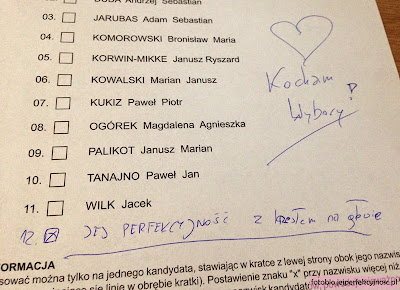 DUDA Andrzej Sebastian
03. JARUBAS Adam Sebastian
04. KOMOROWSKI Bronisław Maria
05. KORWIN-MIKKE Janusz Ryszard
06. KOWALSKI Marian Janusz
07. KUKIZ Paweł Piotr
08. OGÓREK Magdalena Agnieszka
09. PALIKOT Janusz Marian
10. TANAJNO Paweł Jan
11. WILK Jacek
Kocham
Wybory!
12. JEJ PERFEKCYJNOŚĆ z krzesłem na głowie
FORMACJA
sować można tylko na jednego kandydata, stawiając w kratce z lewej strony obok jego nazwis
się linie w obrębie kratki). Postawienie znaku "x" przy nazwisku więcej niż
fotoblog.jejperfekcyjnosc.pl